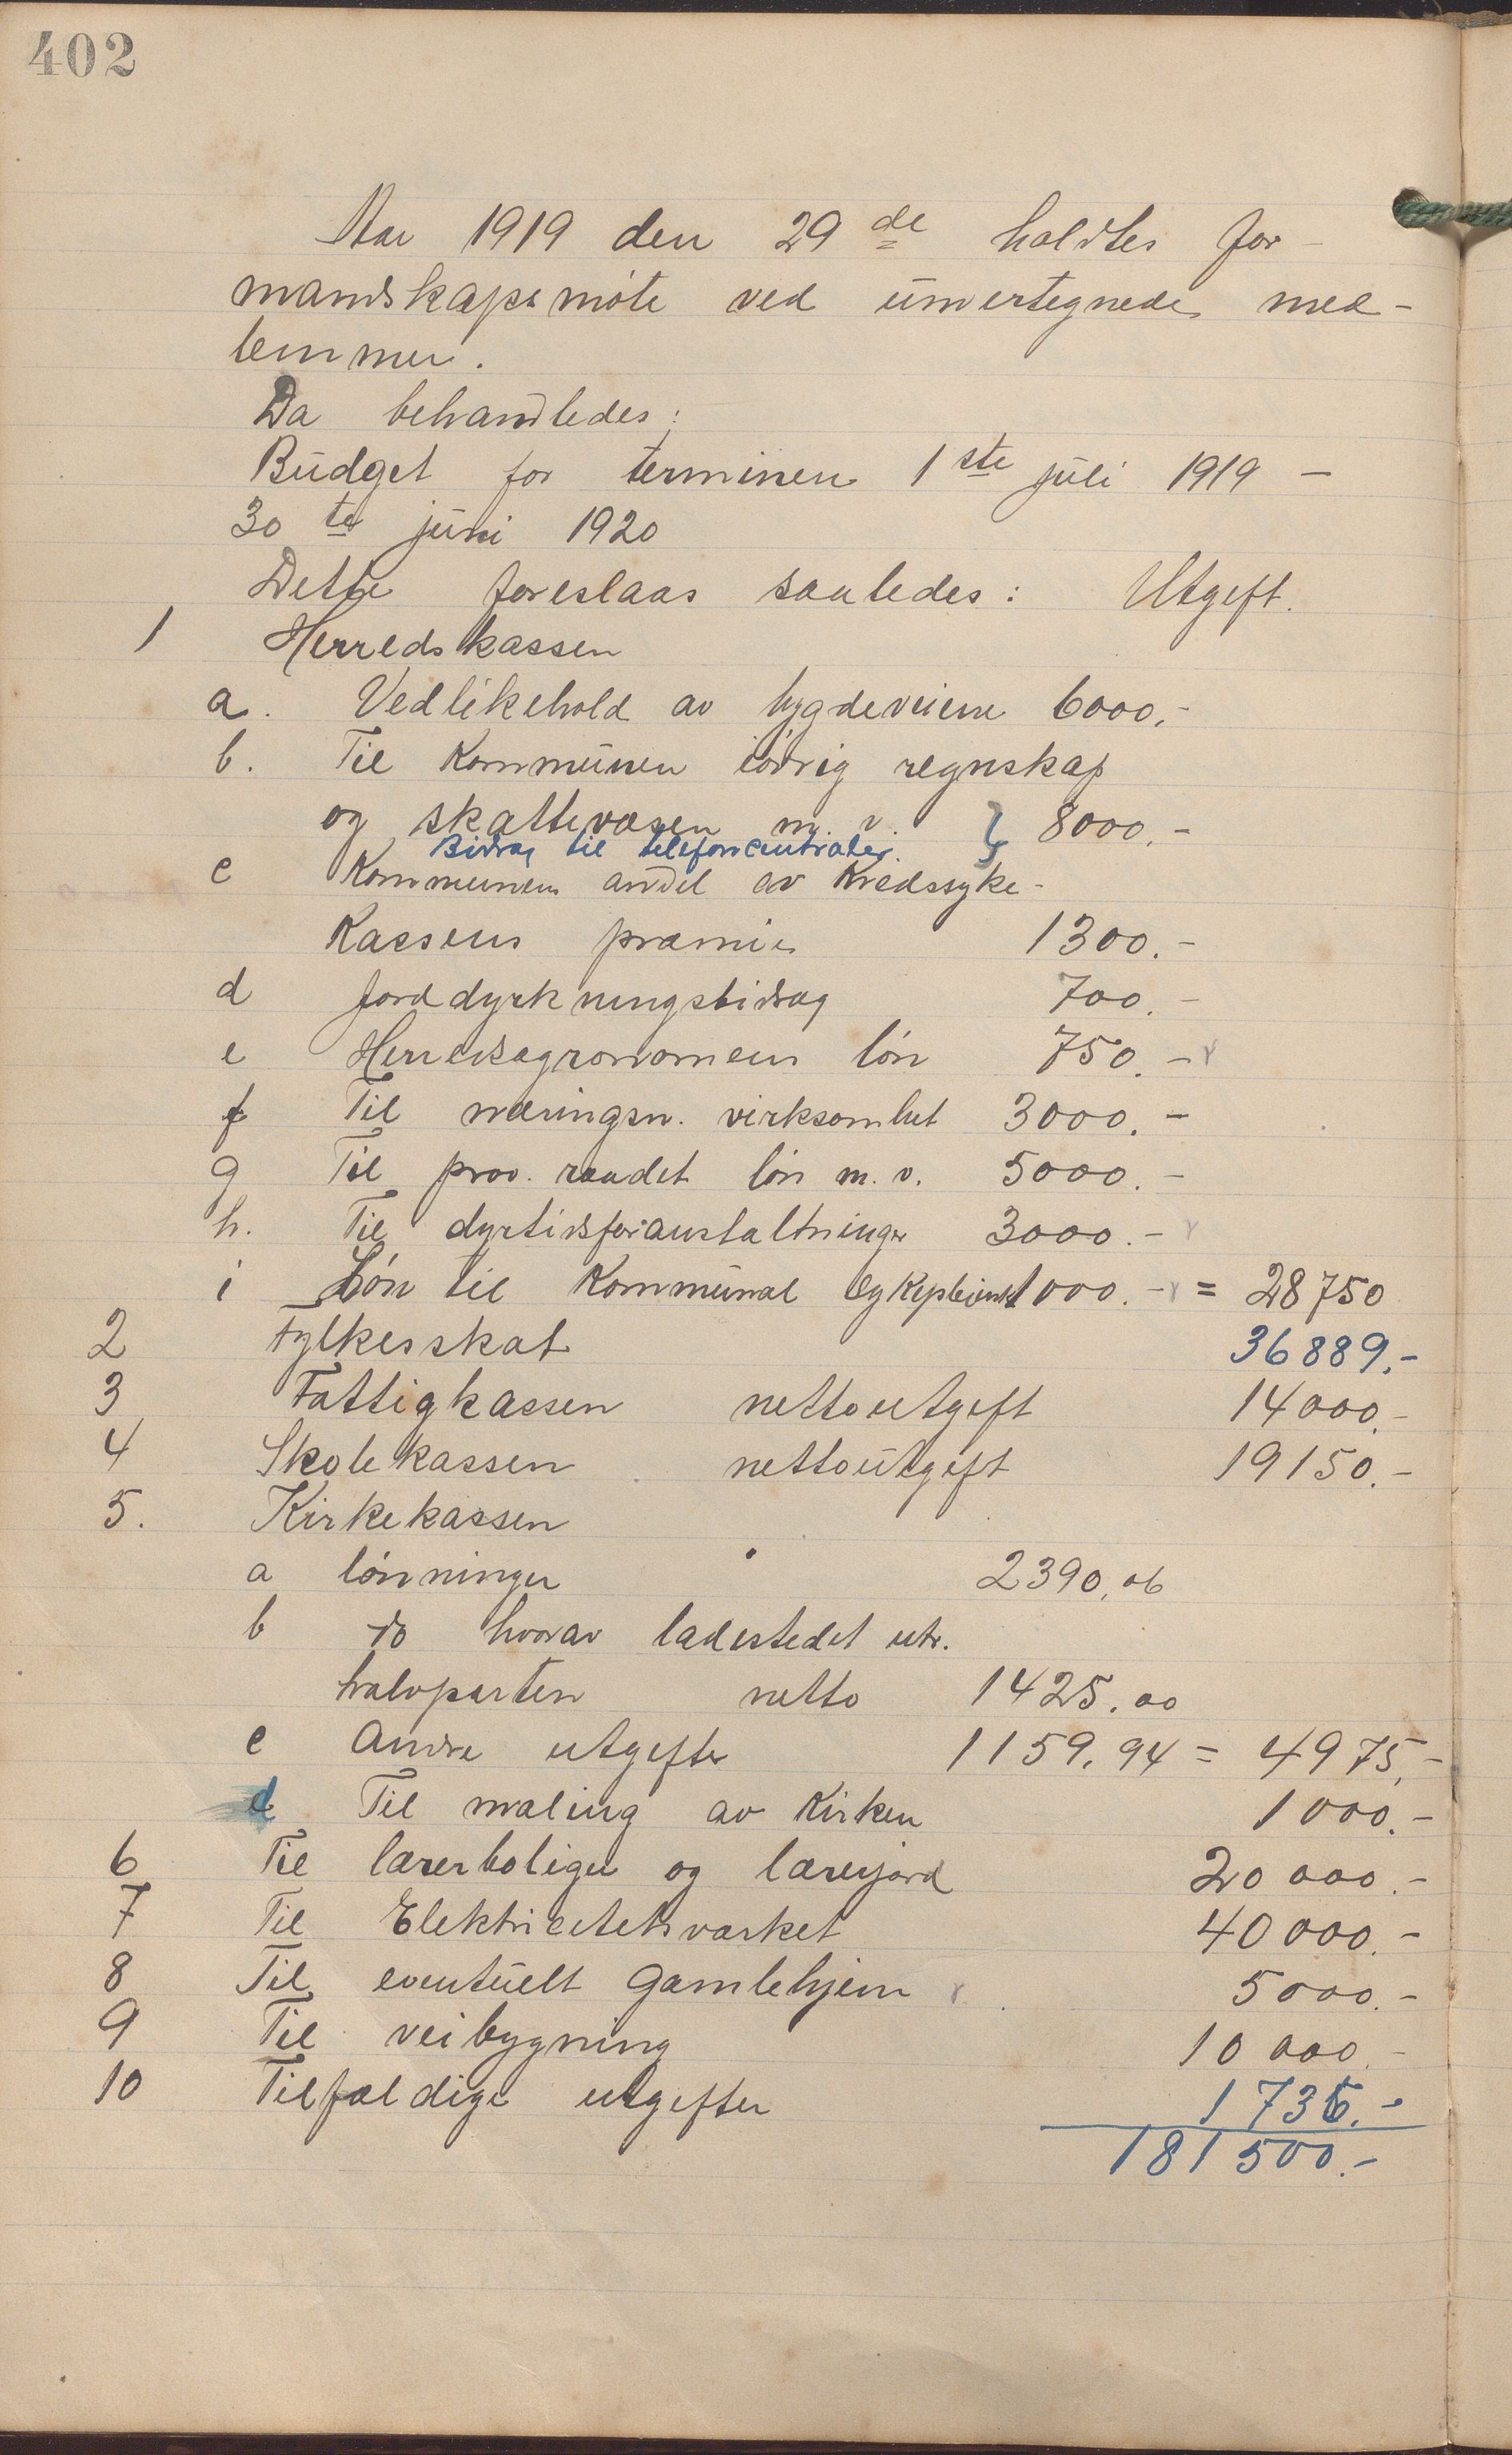 402
Aar 1919 den 29de holdtes for-
mandskapsmöte ved undertegnede med-
lemmer.
Da behandledes:
Budget for terminen 1ste juli 1919 -
30te juni 1920
Dette foreslaas saaledes: Utgift.
1 Herredskassen
a. Vedlikehold av bygdeveiene 6000.-
b. Til Kommunen iövrig regnskap
og skattevæsen m. v. } 8000.-
Bidrag til telefoncentraler.
c Kommunens andel av Kredssyke-
Kassens præmie 1300.-
d Jorddyrkningsbidrag 700.-
e Herredsagronomens lön 750.-
f Til næringsn. virksomhet 3000.-
g Til prov. raadet lön m. v. 5000.-
h. Til dyrtidsforanstaltninger 3000.-
i Lön til Kommunal 1000.- = 28750
2 Fylkesskat 36889.-
3 Fattigkassen nettoutgift 14000.-
4 Skolekassen nettoutgift 19150.-
5. Kirkekassen
a lönninger 2390,06
b do hvorav ladestedet utr.
halvparten netto 1425.00
c Andre utgifter 1159.94 = 4975,-
d Til maling av Kirken 1000.-
6 Til lærerboliger og lærerjord 20000.-
7 Til Elektricitetsværket 40000.-
8 Til eventuelt Gamlehjem 5000.-
9 Til veibygning 10000.-
10 Tilfældige utgifter 1736.-
181500.-